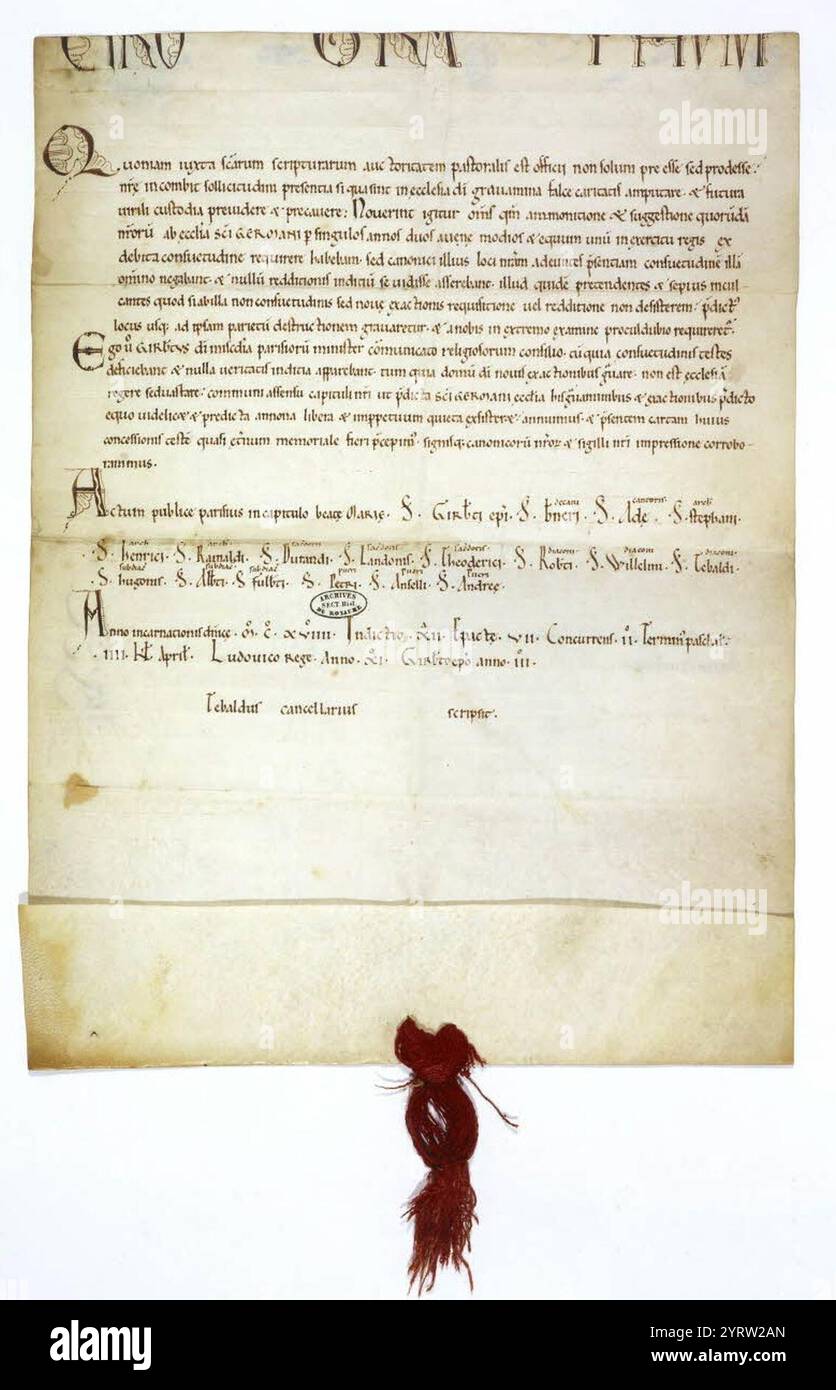 CIRO GRA PHVM
Quoniam iuxta scarum scripturarum auctoritatem pastoralis est officii non solum pre esse sed prodesse.
nrę incombit sollicitudini presentia si qua sint in ecclesia di gravamina falce caritatis amputare & futura
virili custodia previdere & precavere. Noverint igitur oms qm ammonitione & suggestione quorundā
nrorū ab ecclia SCI GERMANI p singulos annos duos avene modios & equum unū in exercitu regis ex
debita consuetudine requirere habebam. sed canonici illius loci nram adeuntes psentiam consuetudinē illā
omino negabant & nullū redditionis indiciū se vidisse asserebant. illud quidē pretendentes & sepius incul
cantes quod si ab illa non consuetudinis sed novę exactionis requisitione vel redditione non desisterem. pdict
locus usq; ad ipsam parietū destructionem gravaretur. & a nobis in extremo examine proculdubio requireret.
Ego GIRBTVS di miscdia parisiorū minister comunicato religiosorum consilio. cū quia consuetudinis testes
deficiebant & nulla veritatis indicia apparebant. tum quia domū di novis exactionibus gvare. non est ecclesiā
regere sed vastare. communi assensu capituli nri ut pdicta SCI GERMANI ecclia his gvaminibus & exactionibus pdicto
equo videlic& & predicta annona libera & imppetuum quieta exsister&. annuimus. & psentem cartam huius
concessionis teste quasi etnum memoriale fieri pcepim. signisq; canonicorū nror & sigilli nri impressione corrobo-
rammus.
Actum publice parisius in capitulo beatę MARIĘ. S. Girbti epi. S. bneri decani. S. Adę cantoris. S. stephani archi.
S. henrici archi. S. Rainaldi archi. S. Durandi sacdotis. S. Landonis sacdotis. S. Theoderici sacdotis. S. Robti diaconi. S. Willelmi diaconi. S. Tebaldi diaconi.
S. hugonis subdiac. S. Albti subdiac. S. fulbti subdiac. S. Petri pueri. S. Anselli pueri. S. Andreę pueri.
ARCHIVES
SECT. Hist.
DU ROYAUME
Anno incarnacionis divinę. M. C. XVIIII. Indictio. XII. Epactę. VII. Concurrens. II. Termin paschal.
IIII. kl. April. Ludovico Rege. Anno. XI. Girbto epo anno. III.
Tebaldus cancellarius scripsit.
alamy
alamy
alamy
alamy
Image ID: 2YRTW2AN
www.alamy.com